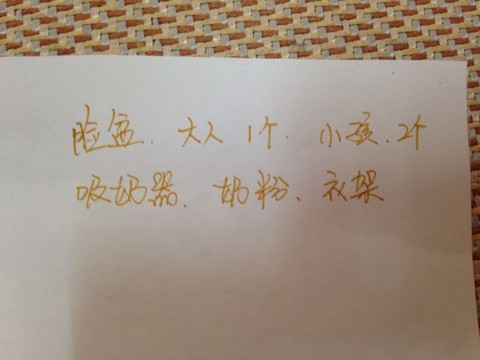 脸盆、大人1个、小孩、2个
吸奶器、奶粉、衣架